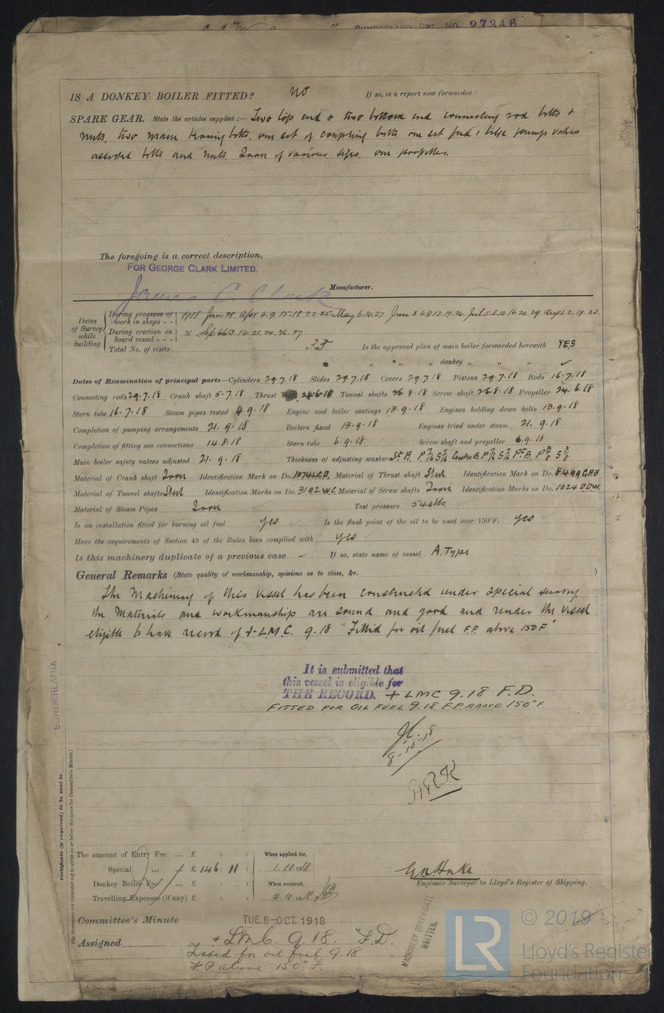 SUNDERLAND Rpt. No. 27346
IS A DONKEY BOILER FITTED? no If so, is a report now forwarded?
SPARE GEAR. State the articles supplied:— Two top end & two bottom end connecting rod bolts &
nuts, two main bearing bolts, one set of coupling bolts, one set feed & bilge pump valves
assorted bolts and nuts, Iron of various sizes, one propeller.
The foregoing is a correct description,
FOR GEORGE CLARK LIMITED.
Manufacturer.
Dates of Survey while building
During progress of work in shops - -
1918
During erection on board vessel - - -
Total No. of visits 35 Is the approved plan of main boiler forwarded herewith YES
" " " donkey " " "
Dates of Examination of principal parts—Cylinders 29.7.18 Slides 29.7.18 Covers 29.7.18 Pistons 29.7.18 Rods 16.7.18
Connecting rods 29.7.18 Crank shaft 5.7.18 Thrust 24.6.18 Tunnel shafts 26.8.18 Screw shaft 26.8.18 Propeller 24.6.18
Stern tube 16.7.18 Steam pipes tested 4.9.18 Engine and boiler seatings 13.9.18 Engines holding down bolts 13.9.18
Completion of pumping arrangements 21.9.18 Boilers fixed 13.9.18 Engines tried under steam 21.9.18
Completion of fitting sea connections 14.8.18 Stern tube 6.9.18 Screw shaft and propeller 6.9.18
Main boiler safety valves adjusted 21.9.18 Thickness of adjusting washers
Material of Crank shaft Iron Identification Mark on Do. Material of Thrust shaft Steel Identification Mark on Do.
Material of Tunnel shafts Steel Identification Marks on Do. 3192 Material of Screw shafts Iron Identification Marks on Do. 1024 DDW.
Material of Steam Pipes Iron Test pressure 540 lbs
Is an installation fitted for burning oil fuel yes Is the flash point of the oil to be used over 150°F. yes
Have the requirements of Section 49 of the Rules been complied with yes
Is this machinery duplicate of a previous case – If so, state name of vessel A. Type
General Remarks (State quality of workmanship, opinions as to class, &c.
The Machinery of this vessel has been constructed under special survey
the Materials and workmanship are sound and good and render the vessel
eligible to have record of + L.M.C. 9.18 "Fitted for oil fuel F.P. above 150°F"
It is submitted that
this vessel is eligible for
THE RECORD. + LMC 9.18 F.D.
FITTED FOR OIL FUEL 9.18 F.P. ABOVE 150°F.
8-10-18
SUNDERLAND
Certificate (if required) to be sent to
The amount of Entry Fee ... £ : : When applied for,
Special " ... £ 146 : 11 : 1.10.18
Donkey Boiler Fee ... £ : : When received,
Travelling Expenses (if any) £ : :
Engineer Surveyor to Lloyd's Register of Shipping.
Committee's Minute TUE. 8-OCT. 1918
Assigned + LMC 9.18. F.D.
Fitted for oil fuel 9.18
F.P. above 150°F.
MACHINERY CERTIFICATE
WRITTEN.
LR
© 2019
Lloyd's Register
Foundation